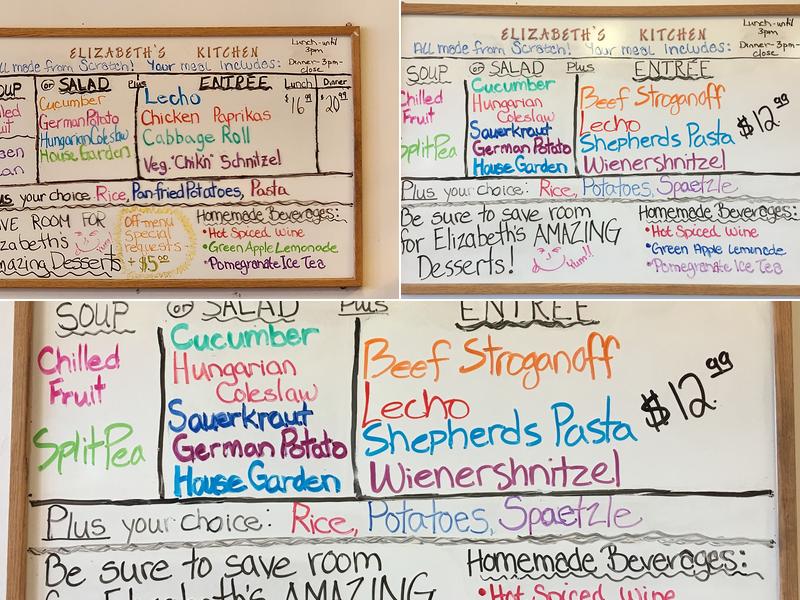 ELIZABETH'S KITCHEN
Lunch-until 3pm
Dinner-3pm-close
All made from Scratch! Your meal includes:
or SALAD Plus ENTRÉE Lunch Dinner
Cucumber
German Potato
Hungarian Coleslaw
House Garden
Lecho
Chicken Paprikas
Cabbage Roll
Veg. "Chik'n" Schnitzel
$16.99
$20.99
your choice: Rice, Pan-fried Potatoes, Pasta
ROOM FOR
Desserts
Yum!
Off menu
Special
requests
+ $5.00
Homemade Beverages:
•Hot Spiced Wine
•Green Apple Lemonade
•Pomegranate Ice Tea
ELIZABETH'S KITCHEN
Lunch-until
3pm
Dinner-3pm-
close
All made from Scratch! Your meal includes:
SOUP or SALAD Plus ENTRÉE
Chilled
Fruit
Split Pea
Cucumber
Hungarian
Coleslaw
Sauerkraut
German Potato
House Garden
Beef Stroganoff
Lecho
Shepherds Pasta
Wienershnitzel
$12.99
Plus your choice: Rice, Potatoes, Spaetzle
Be sure to save room
for Elizabeth's AMAZING
Desserts!
Yum!!
Homemade Beverages:
•Hot Spiced Wine
•Green Apple Lemonade
•Pomegranate Ice Tea
SOUP or SALAD Plus ENTRÉE
Chilled
Fruit
Split Pea
Cucumber
Hungarian
Coleslaw
Sauerkraut
German Potato
House Garden
Beef Stroganoff
Lecho
Shepherds Pasta
Wienershnitzel
$12.99
Plus your choice: Rice, Potatoes, Spaetzle
Be sure to save room
for Elizabeth's AMAZING
Homemade Beverages:
•Hot Spiced Wine